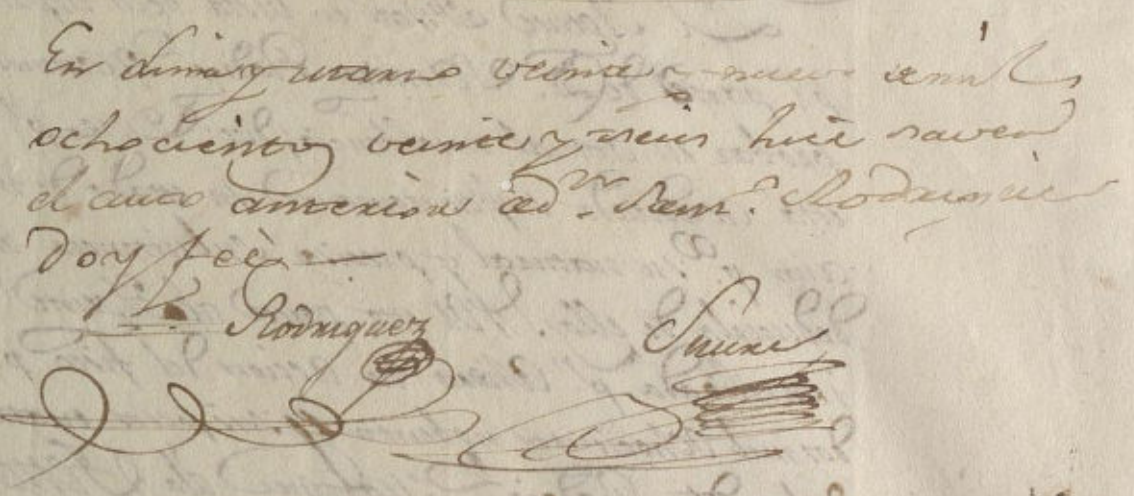 En Lima y Marzo veinte y nueve de mil
ochocientos veinte y seis hice saver
el auto anterior a d.n Sant.o Rodriguez
Doy feè
Rodriguez